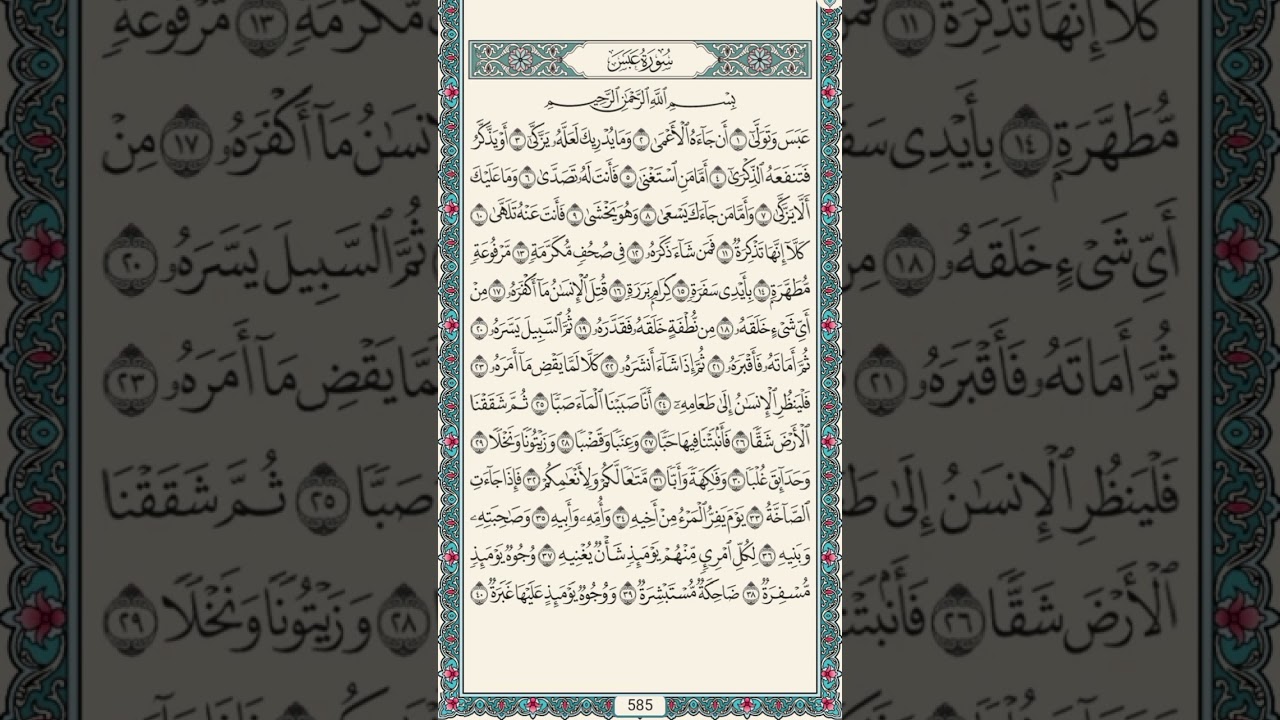 سُورَةُ عَبَسَ
بِسْمِ ٱللَّهِ ٱلرَّحْمَٰنِ ٱلرَّحِيمِ
عَبَسَ وَتَوَلَّىٰٓ ١ أَن جَآءَهُ ٱلْأَعْمَىٰ ٢ وَمَا يُدْرِيكَ لَعَلَّهُۥ يَزَّكَّىٰٓ ٣ أَوْ يَذَّكَّرُ
فَتَنفَعَهُ ٱلذِّكْرَىٰٓ ٤ أَمَّا مَنِ ٱسْتَغْنَىٰ ٥ فَأَنتَ لَهُۥ تَصَدَّىٰ ٦ وَمَا عَلَيْكَ
أَلَّا يَزَّكَّىٰ ٧ وَأَمَّا مَن جَآءَكَ يَسْعَىٰ ٨ وَهُوَ يَخْشَىٰ ٩ فَأَنتَ عَنْهُ تَلَهَّىٰ ١٠
كَلَّآ إِنَّهَا تَذْكِرَةٌ ١١ فَمَن شَآءَ ذَكَرَهُۥ ١٢ فِى صُحُفٍ مُّكَرَّمَةٍ ١٣ مَّرْفُوعَةٍ
مُّطَهَّرَةٍۭ ١٤ بِأَيْدِى سَفَرَةٍ ١٥ كِرَامٍۭ بَرَرَةٍ ١٦ قُتِلَ ٱلْإِنسَٰنُ مَآ أَكْفَرَهُۥ ١٧ مِنْ
أَىِّ شَىْءٍ خَلَقَهُۥ ١٨ مِن نُّطْفَةٍ خَلَقَهُۥ فَقَدَّرَهُۥ ١٩ ثُمَّ ٱلسَّبِيلَ يَسَّرَهُۥ ٢٠
ثُمَّ أَمَاتَهُۥ فَأَقْبَرَهُۥ ٢١ ثُمَّ إِذَا شَآءَ أَنشَرَهُۥ ٢٢ كَلَّا لَمَّا يَقْضِ مَآ أَمَرَهُۥ ٢٣
فَلْيَنظُرِ ٱلْإِنسَٰنُ إِلَىٰ طَعَامِهِۦٓ ٢٤ أَنَّا صَبَبْنَا ٱلْمَآءَ صَبًّا ٢٥ ثُمَّ شَقَقْنَا
ٱلْأَرْضَ شَقًّا ٢٦ فَأَنۢبَتْنَا فِيهَا حَبًّا ٢٧ وَعِنَبًا وَقَضْبًا ٢٨ وَزَيْتُونًا وَنَخْلًا ٢٩
وَحَدَآئِقَ غُلْبًا ٣٠ وَفَٰكِهَةً وَأَبًّا ٣١ مَّتَٰعًا لَّكُمْ وَلِأَنْعَٰمِكُمْ ٣٢ فَإِذَا جَآءَتِ
ٱلصَّآخَّةُ ٣٣ يَوْمَ يَفِرُّ ٱلْمَرْءُ مِنْ أَخِيهِ ٣٤ وَأُمِّهِۦ وَأَبِيهِ ٣٥ وَصَٰحِبَتِهِۦ
وَبَنِيهِ ٣٦ لِكُلِّ ٱمْرِئٍ مِّنْهُمْ يَوْمَئِذٍ شَأْنٌ يُغْنِيهِ ٣٧ وُجُوهٌ يَوْمَئِذٍ
مُّسْفِرَةٌ ٣٨ ضَاحِكَةٌ مُّسْتَبْشِرَةٌ ٣٩ وَوُجُوهٌ يَوْمَئِذٍ عَلَيْهَا غَبَرَةٌ ٤٠
585